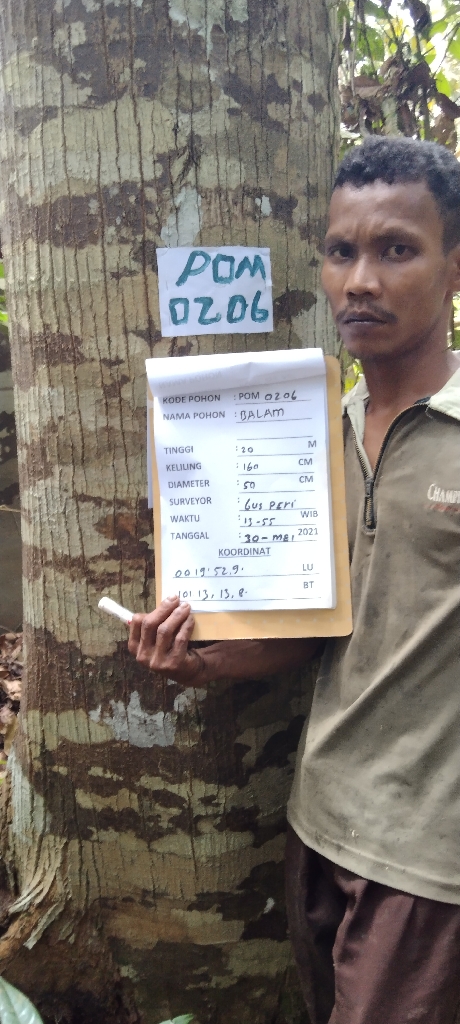 POM
0206
KODE POHON : POM 0206
NAMA POHON : BALAM
TINGGI : 20 M
KELILING : 160 CM
DIAMETER : 50 CM
SURVEYOR : GUS PERI
WAKTU : 13-55 WIB
TANGGAL : 30-MEI 2021
KOORDINAT
0019'52.9. LU
101 13, 13, 8. BT
CHAMP